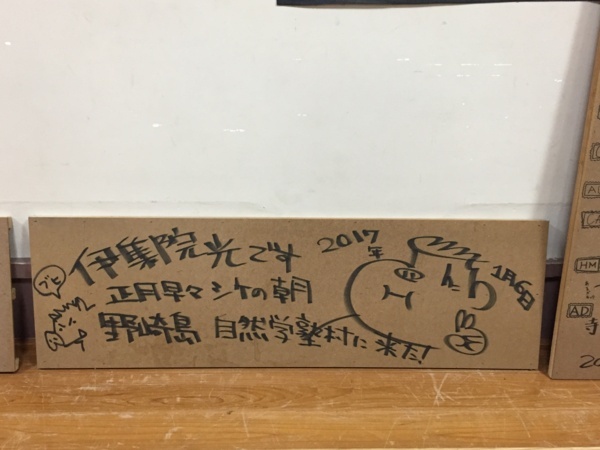 伊集院光です
正月早々シケの朝
野崎島 自然学塾村に来た!
2017年
1月6日
HM
AD
寺
20